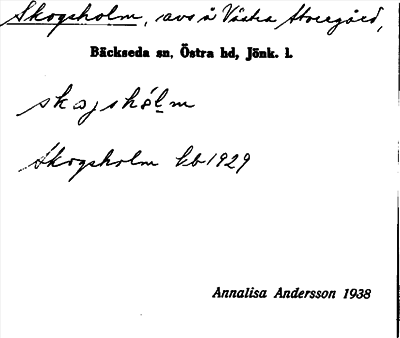 Skogsholm, avs å Västra Storegård,
Bäckseda sn, Östra hd, Jönk. l.
skɷʒshólm
Skogsholm kb 1929
Annalisa Andersson 1938